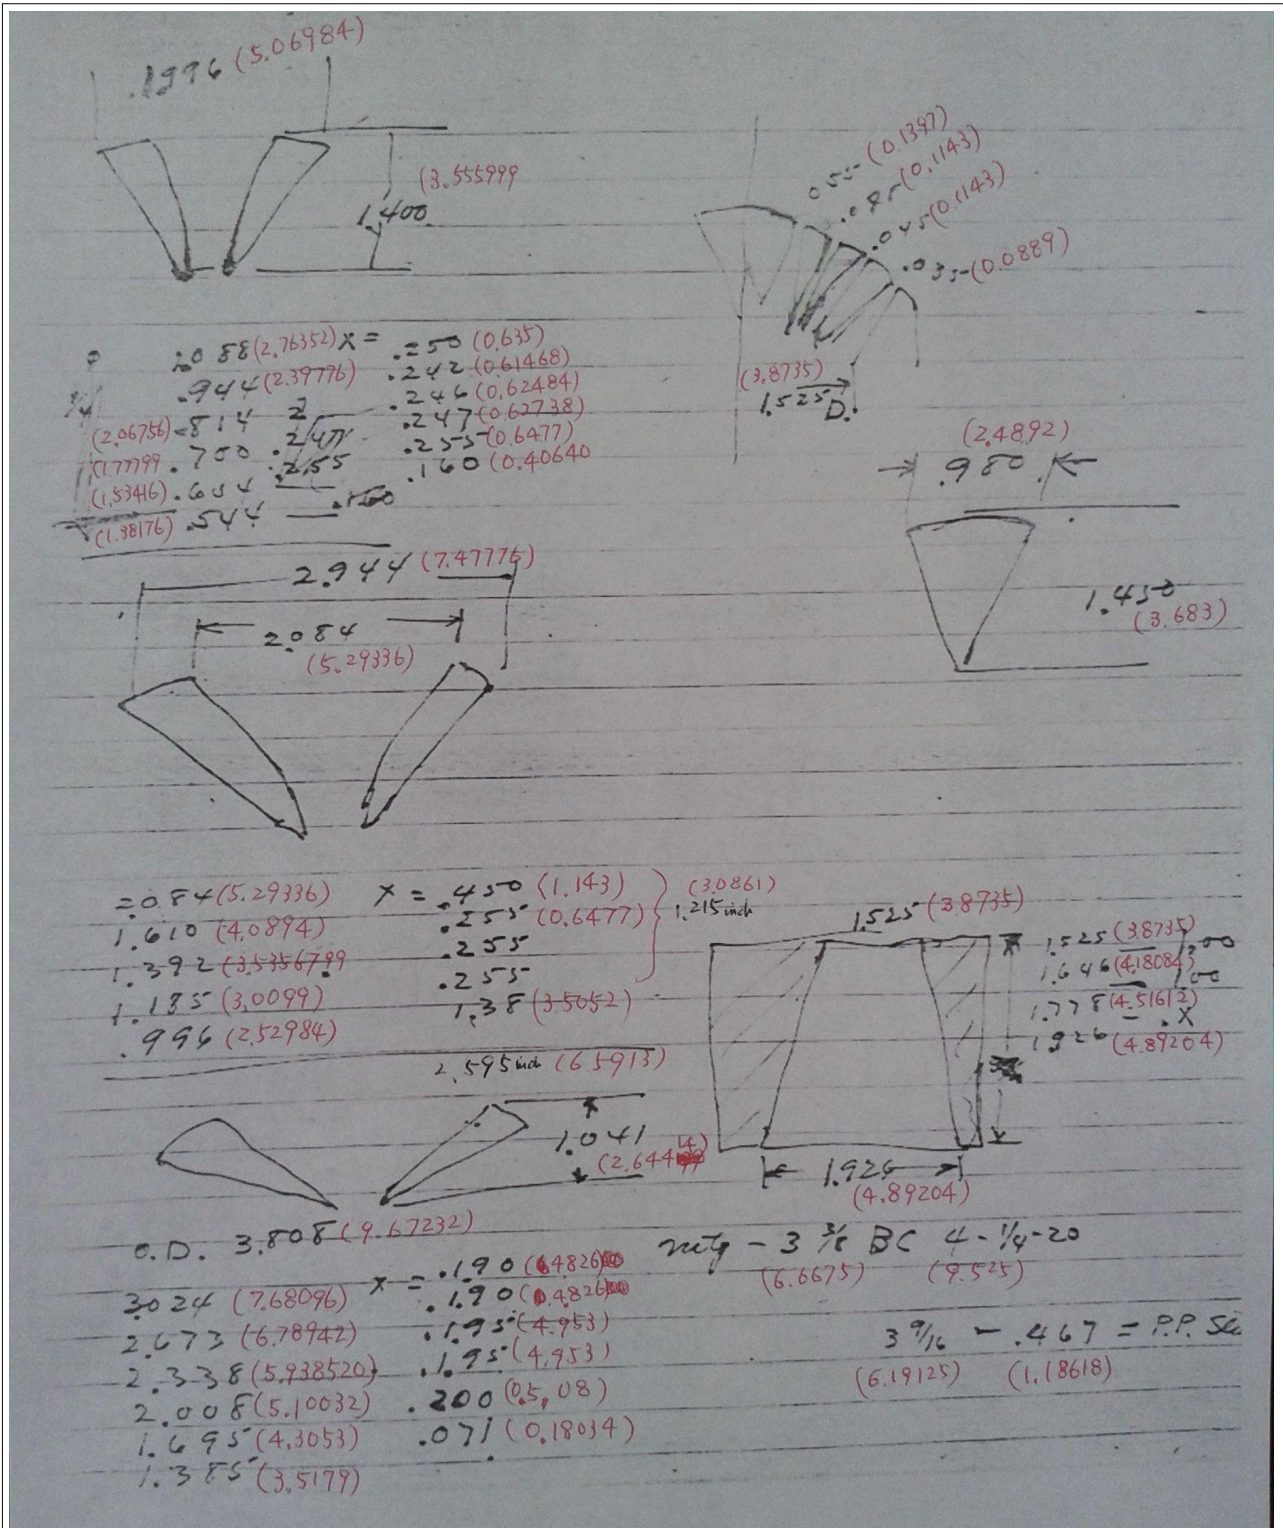 .1996 (5.06984)
(3.555999
1.400
.055 (0.1397)
.045 (0.1143)
.045 (0.1143)
.035 (0.0889)
(3.8735)
1.525 D.
1.088 (2.76352) X = .250 (0.635)
.944 (2.39776) .242 (0.61468)
.246 (0.62484)
(2.06756) .814 .247 (0.62738)
(1.77799 .700 .255 (0.6477)
(1.53416) .604 .255 .160 (0.40640
(1.38176) .544 .160
(2.4892)
.980
1.450
(3.683)
2.944 (7.47776)
2.084
(5.29336)
2.084 (5.29336) X = .450 (1.143) (3.0861)
1.610 (4.0894) .255 (0.6477) 1.215 inch
1.392 (3.5356799 .255
1.185 (3.0099) .255
.996 (2.52984) 1.38 (3.5052)
2.595 inch (6.5913)
1.525 (3.8735)
1.525 (3.8735) 1.00
1.646 (4.18084) 1.00
1.778 (4.51612) .X
1.926 (4.89204)
1.926
(4.89204)
1.041
(2.644
O.D. 3.808 (9.67232)
3.024 (7.68096) X = .190 (0.4826)
2.673 (6.78942) .190 (0.4826)
2.338 (5.938520) .195 (4.953)
2.008 (5.10032) .195 (4.953)
1.695 (4.3053) .200 (0.5,08)
1.385 (3.5179) .071 (0.18034)
mtg - 3 3/8 BC 4-1/4-20
(6.6675) (9.525)
3 9/16 - .467 = P.P.
(6.19125) (1.18618)